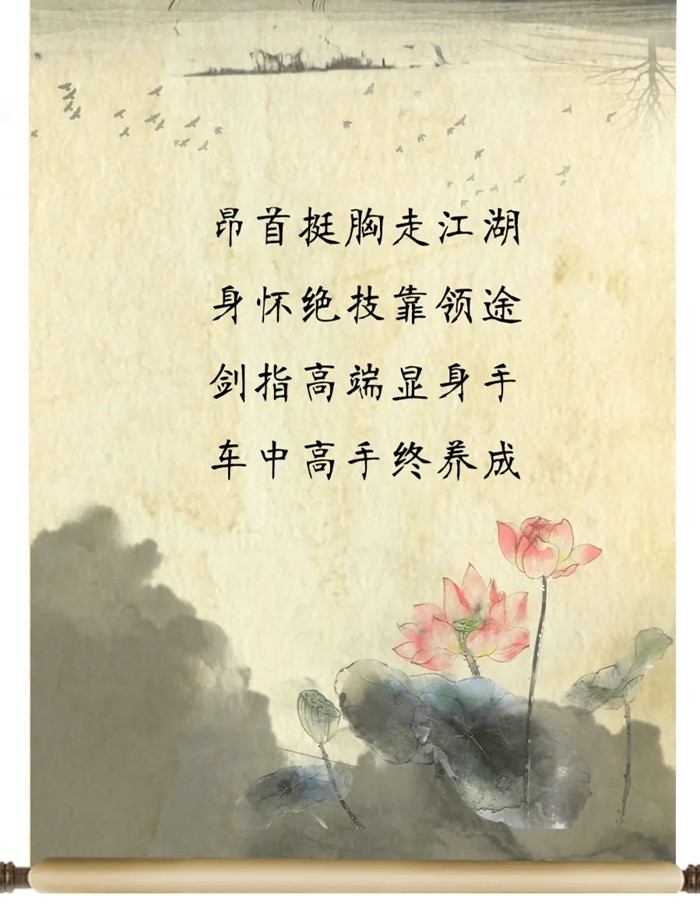 昂首挺胸走江湖
身怀绝技靠领途
剑指高端显身手
车中高手终养成